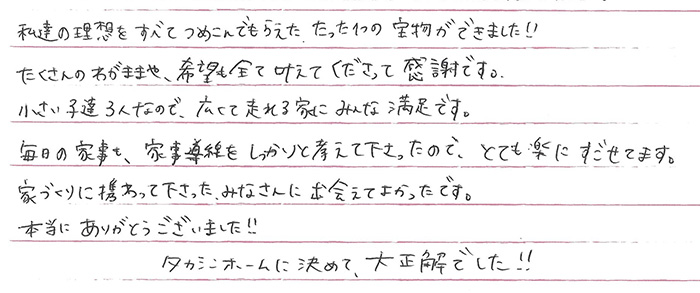 私達の理想をすべてつめこんでもらえた、たった1つの宝物ができました!!
たくさんのわがままや、希望も全て叶えてくださって感謝です。
小さい子達3人なので、広くて走れる家にみんな満足です。
毎日の家事も、家事導線をしっかりと考えて下さったので、とても楽にすごせてます。
家づくりに携わって下さった、みなさんに出会えてよかったです。
本当にありがとうございました!!
タカシンホームに決めて、大正解でした!!